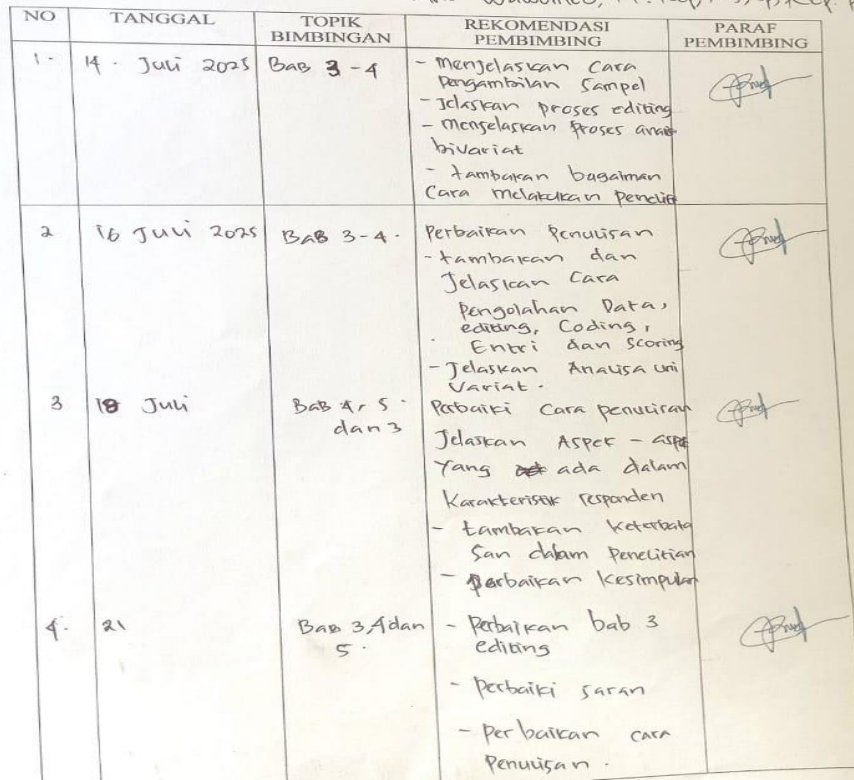 NO TANGGAL TOPIK BIMBINGAN REKOMENDASI PEMBIMBING PARAF PEMBIMBING
1. 14. Juli 2025 BaB 3-4 - Menjelaskan Cara
Pengambilan Sampel
- Jelaskan proses editing
- menjelaskan proses
bivariat
- tambakan bagaiman
Cara melakukan
2 16 Juli 2025 BaB 3-4. Perbaikan Penulisan
- tambakan dan
Jelaskan Cara
Pengolahan Data,
editing, Coding,
Entri dan Scoring
- Jelaskan Analisa uni
Variat.
3 18 Juli BaB 4, 5. Perbaiki Cara penulisan
dan 3 Jelaskan Aspek -
Yang ada dalam
Karakteristik responden
- tambakan keterbata
San dalam Penelitian
- perbaikan Kesimpulan
4. 21 Bab 3,4 dan - Perbaikan bab 3
5. editing
- Perbaiki saran
- Perbaikan cara
Penulisan.